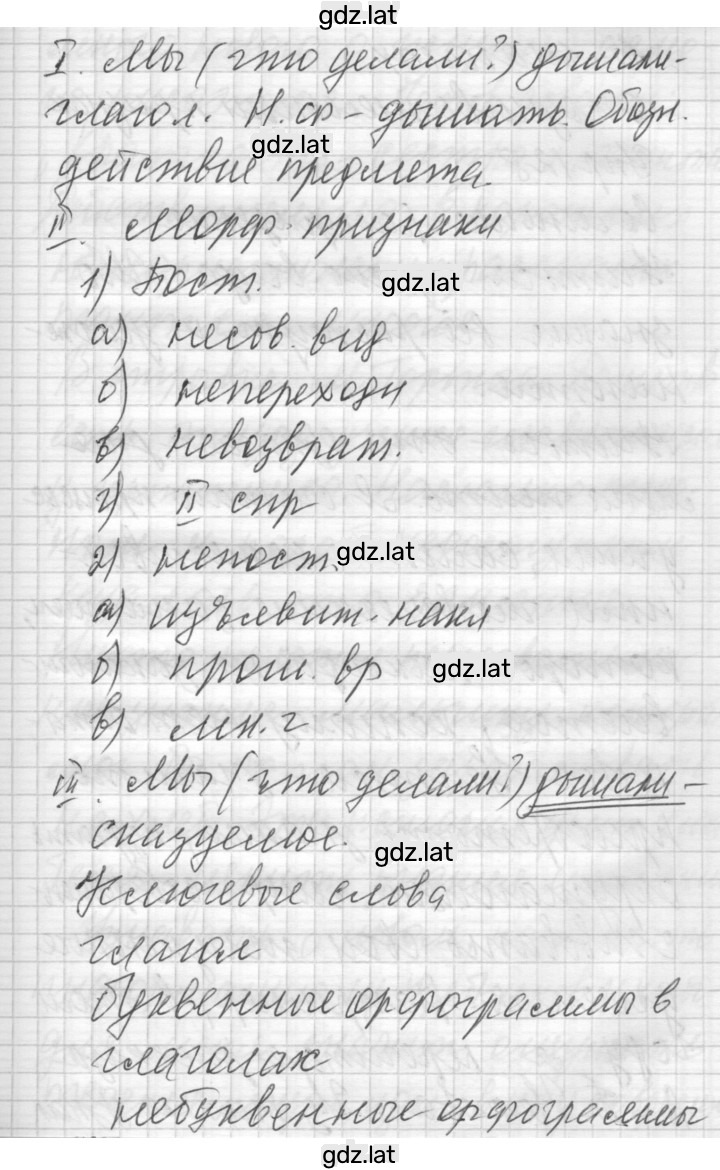 gdz.lat
I. Мы (что делали?) дышали-
глагол. Н. ф - дышать. Обозн.
gdz.lat
действие предмета.
II. Морф. признаки
1) Пост.
gdz.lat
а) несов. вид
б) непереходн
в) невозврат.
г) II спр
2) непост.
gdz.lat
а) изъявит. накл
б) прош. вр
gdz.lat
в) мн. ч
III. Мы (что делали?) дышали -
сказуемое.
gdz.lat
Ключевые слова
глагол
буквенные орфограммы в
глаголах
небуквенные орфограммы
gdz.lat